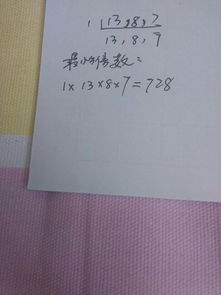 1 13,8,7
13,8,7
最小公倍数:
1×13×8×7=728